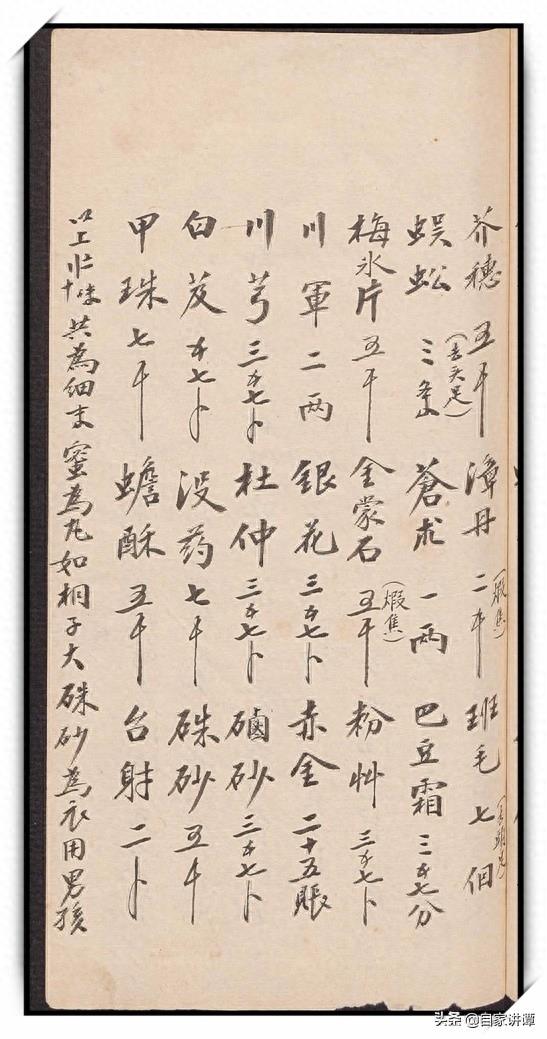 芥穗 五千 漳丹 二千(煅焦) 班毛 七個
蜈蚣 三条(去头足) 蒼朮 一两 巴豆霜 三千七分
梅氷片 五千 金蒙石 五千(煅焦) 粉艸 三千七卜
川軍 二两 銀花 三千七卜 赤金 二十五賬
川芎 三千七卜 杜仲 三千七卜 磠砂 三千七卜
白芨 千七卜 没药 七千 硃砂 五千
甲珠 七千 蟾酥 五千 台射 二卜
以上 味共為細末蜜為丸如桐子大硃砂為衣用男孩
头条 @自家讲谭